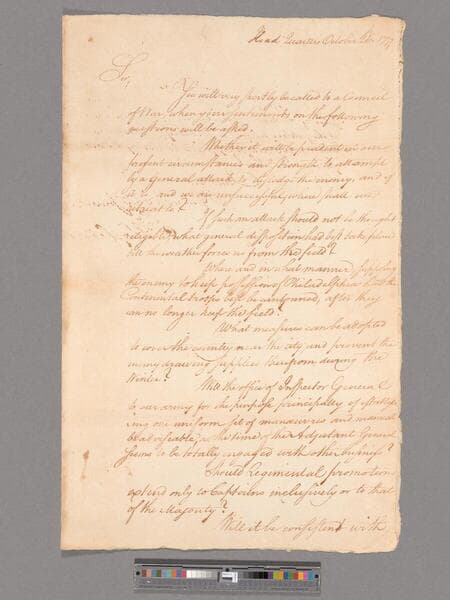 Head Quarters October 26th 1777
Sir,
You will very shortly be called to a Council
of War, when your sentiments on the following
questions will be asked.
Whether it will be prudent in our
present circumstances and Strength to attempt
by a general attack to dislodge the enemy, and if
it is, and we are unsuccessful, where shall we
retreat to?
If such an attack should not be thought
eligible, what general disposition had best take place
till the weather forces us from the field?
Where and in what manner, supposing
the enemy to keep possession of Philadelphia had the
Continental troops best be cantonned, after they
can no longer keep the field?
What measures can be adopted
to cover the country near the city and prevent the
enemy drawing supplies therefrom during the
Winter?
Will the office of Inspector General
to our army for the purpose principally of establish
ing one uniform set of manœuvres and manual
be adviseable, as the time of the Adjutant General
seems to be totally engaged with other business?
Should regimental promotions
extend only to Captains inclusively or to that
of the Majority?
Will it be consistent with